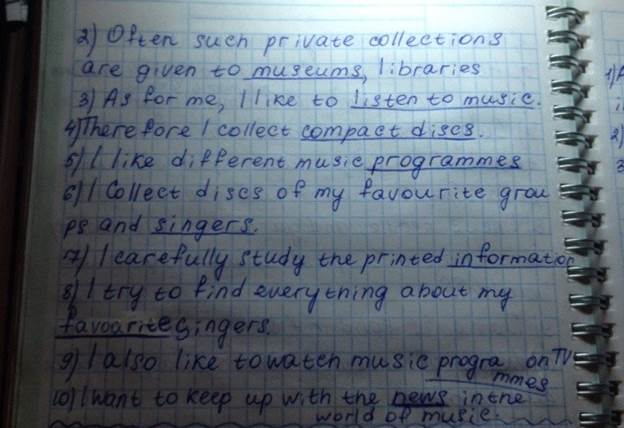 2) Often such private collections
are given to museums, libraries
3) As for me, I like to listen to music.
4) Therefore I collect compact discs.
5) I like different music programmes
6) I collect discs of my favourite grou
ps and singers.
7) I carefully study the printed information
8) I try to find everything about my
favoarite singers.
9) I also like to watch music progra on TV
mmes
10) I want to keep up with the news in the
world of music.
1)
2)
3